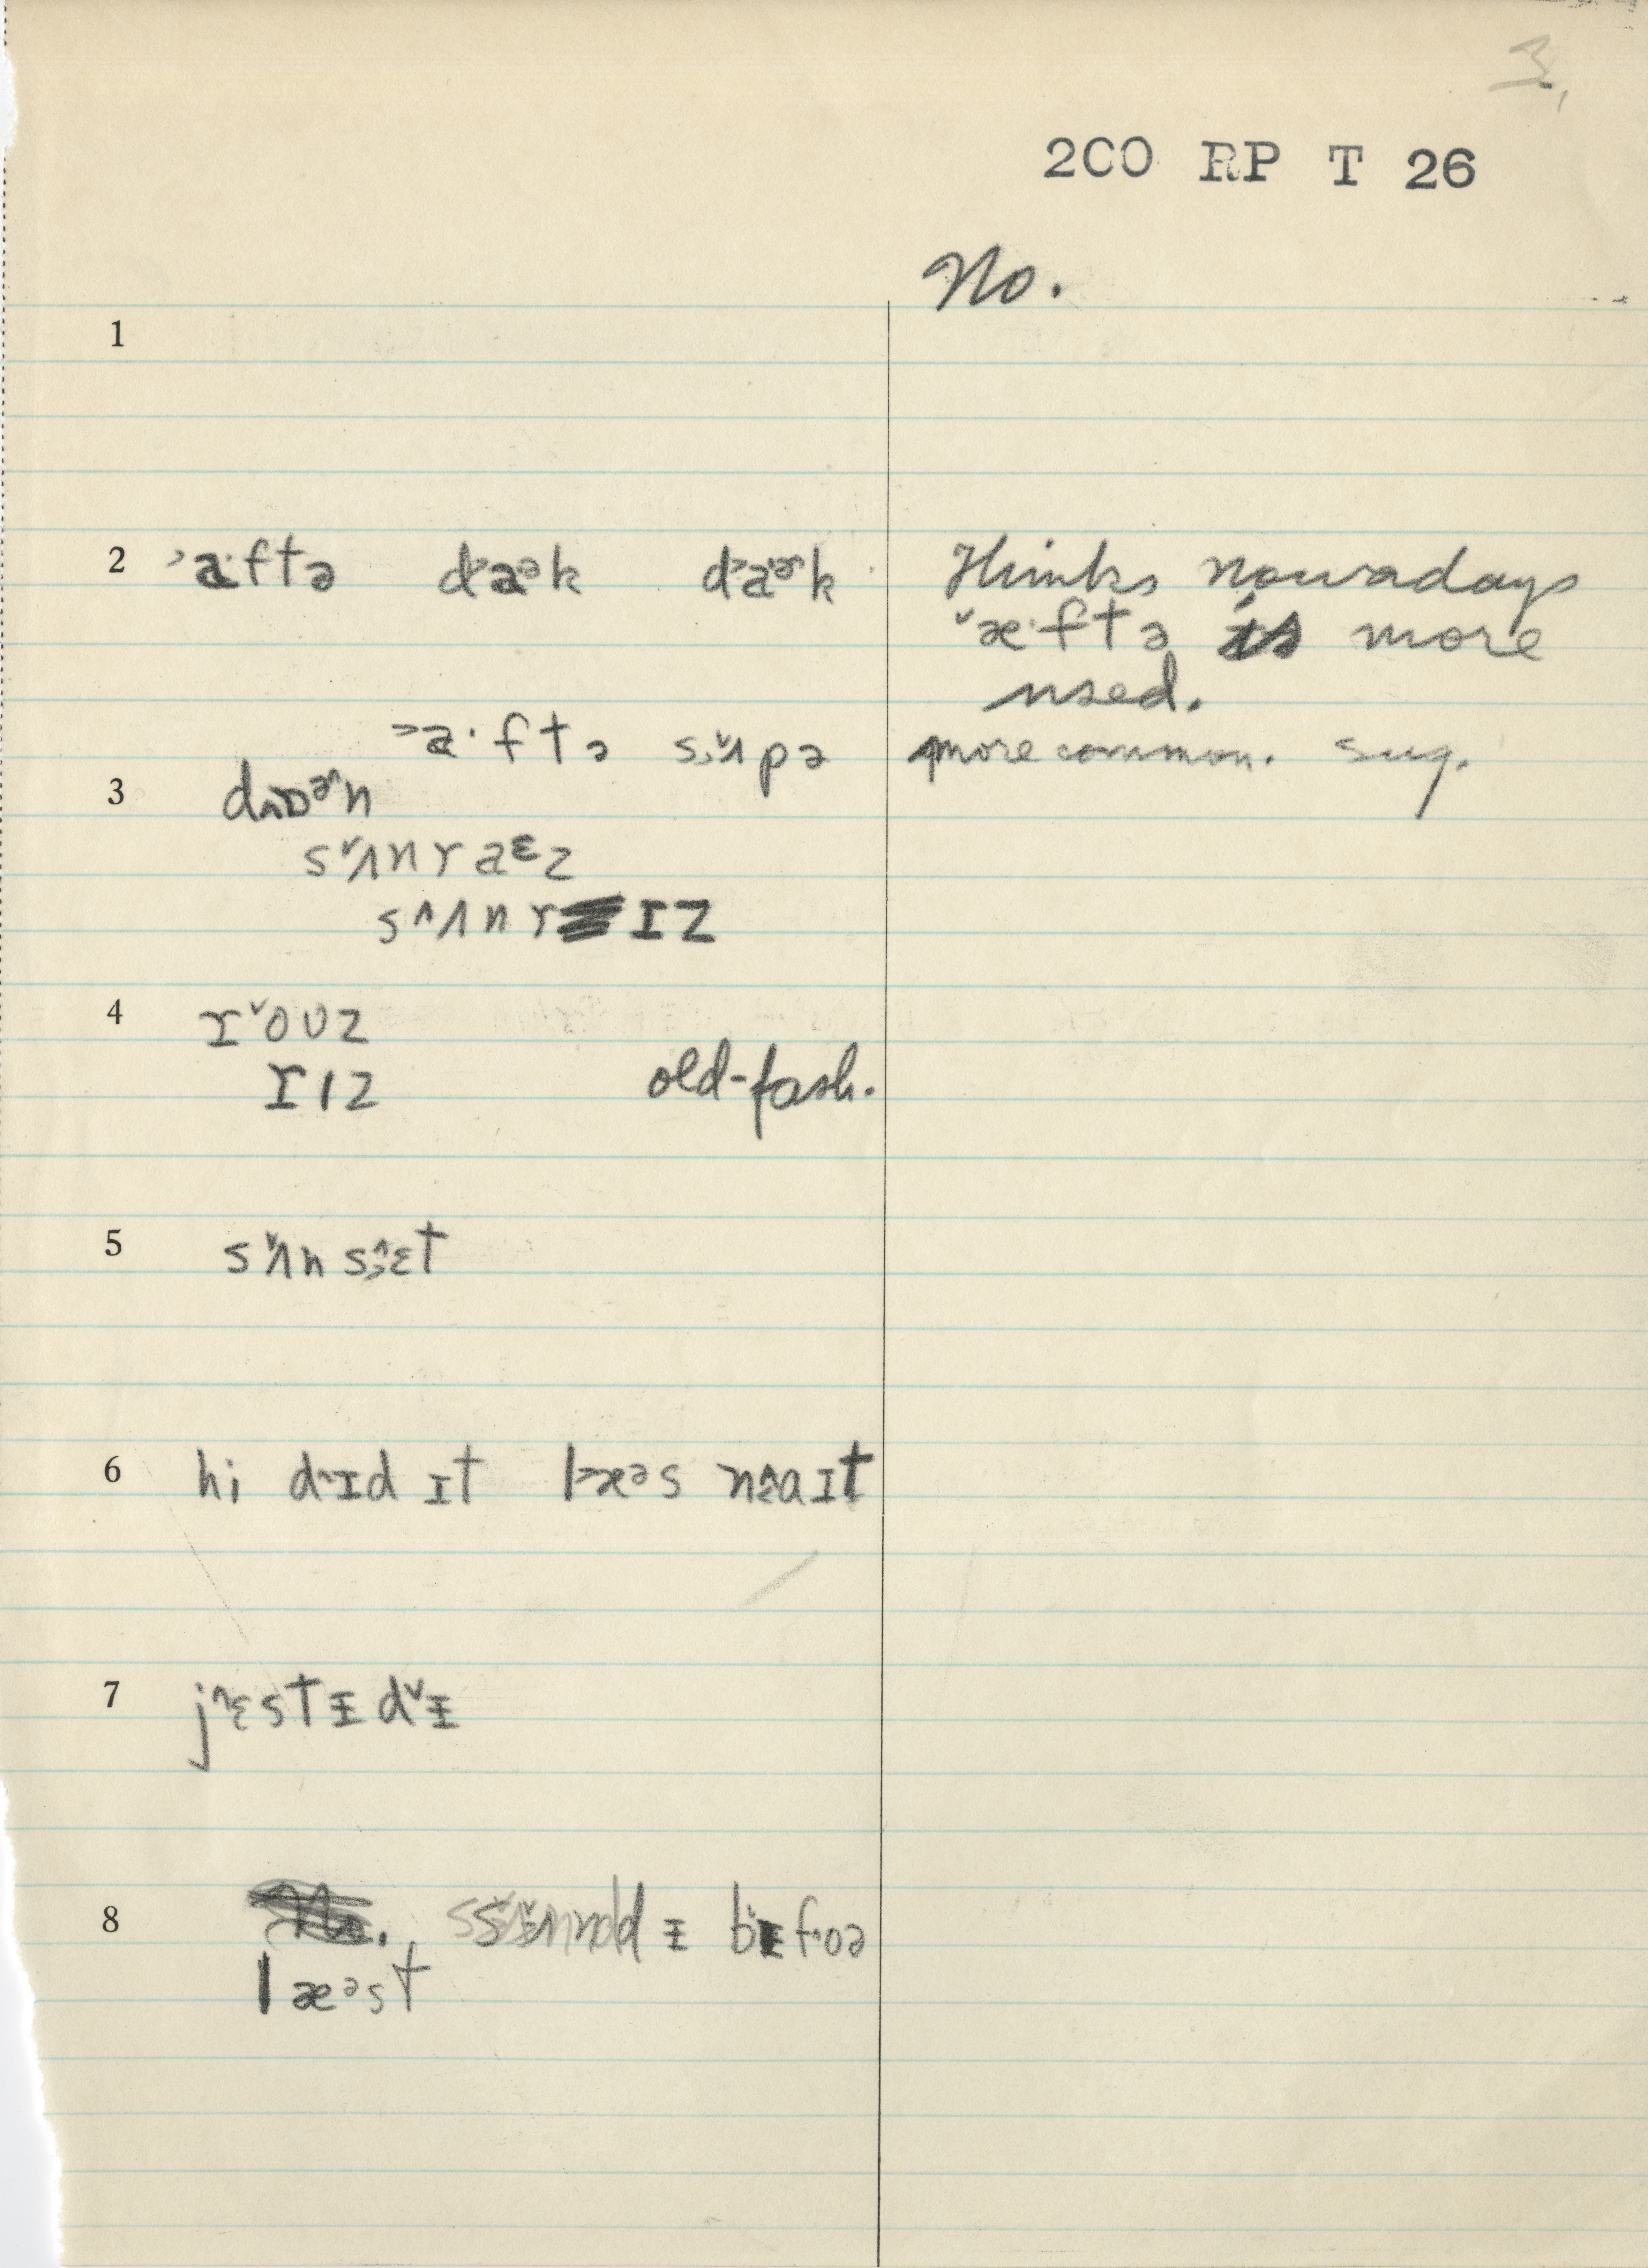 3,
2CO RP T 26
No.
1
2 ˃a·ftə da˃ək da˃ɚk Thinks nowadays
˅æ·ftə is more
used.
˃a·ftə s˅ʌpə more common. sug.
3 dɒɚn
s˅ʌnraᵋz
s˄ʌnrɪz
4 r˅oʊz
rɪz old-fash.
5 s˅ʌnsɛt
6 hi d˄ɪd ɪt læ˃əs n˄aɪt
7 j˄ɛstɪd˅ɪ
8 bɪfoə
læəst